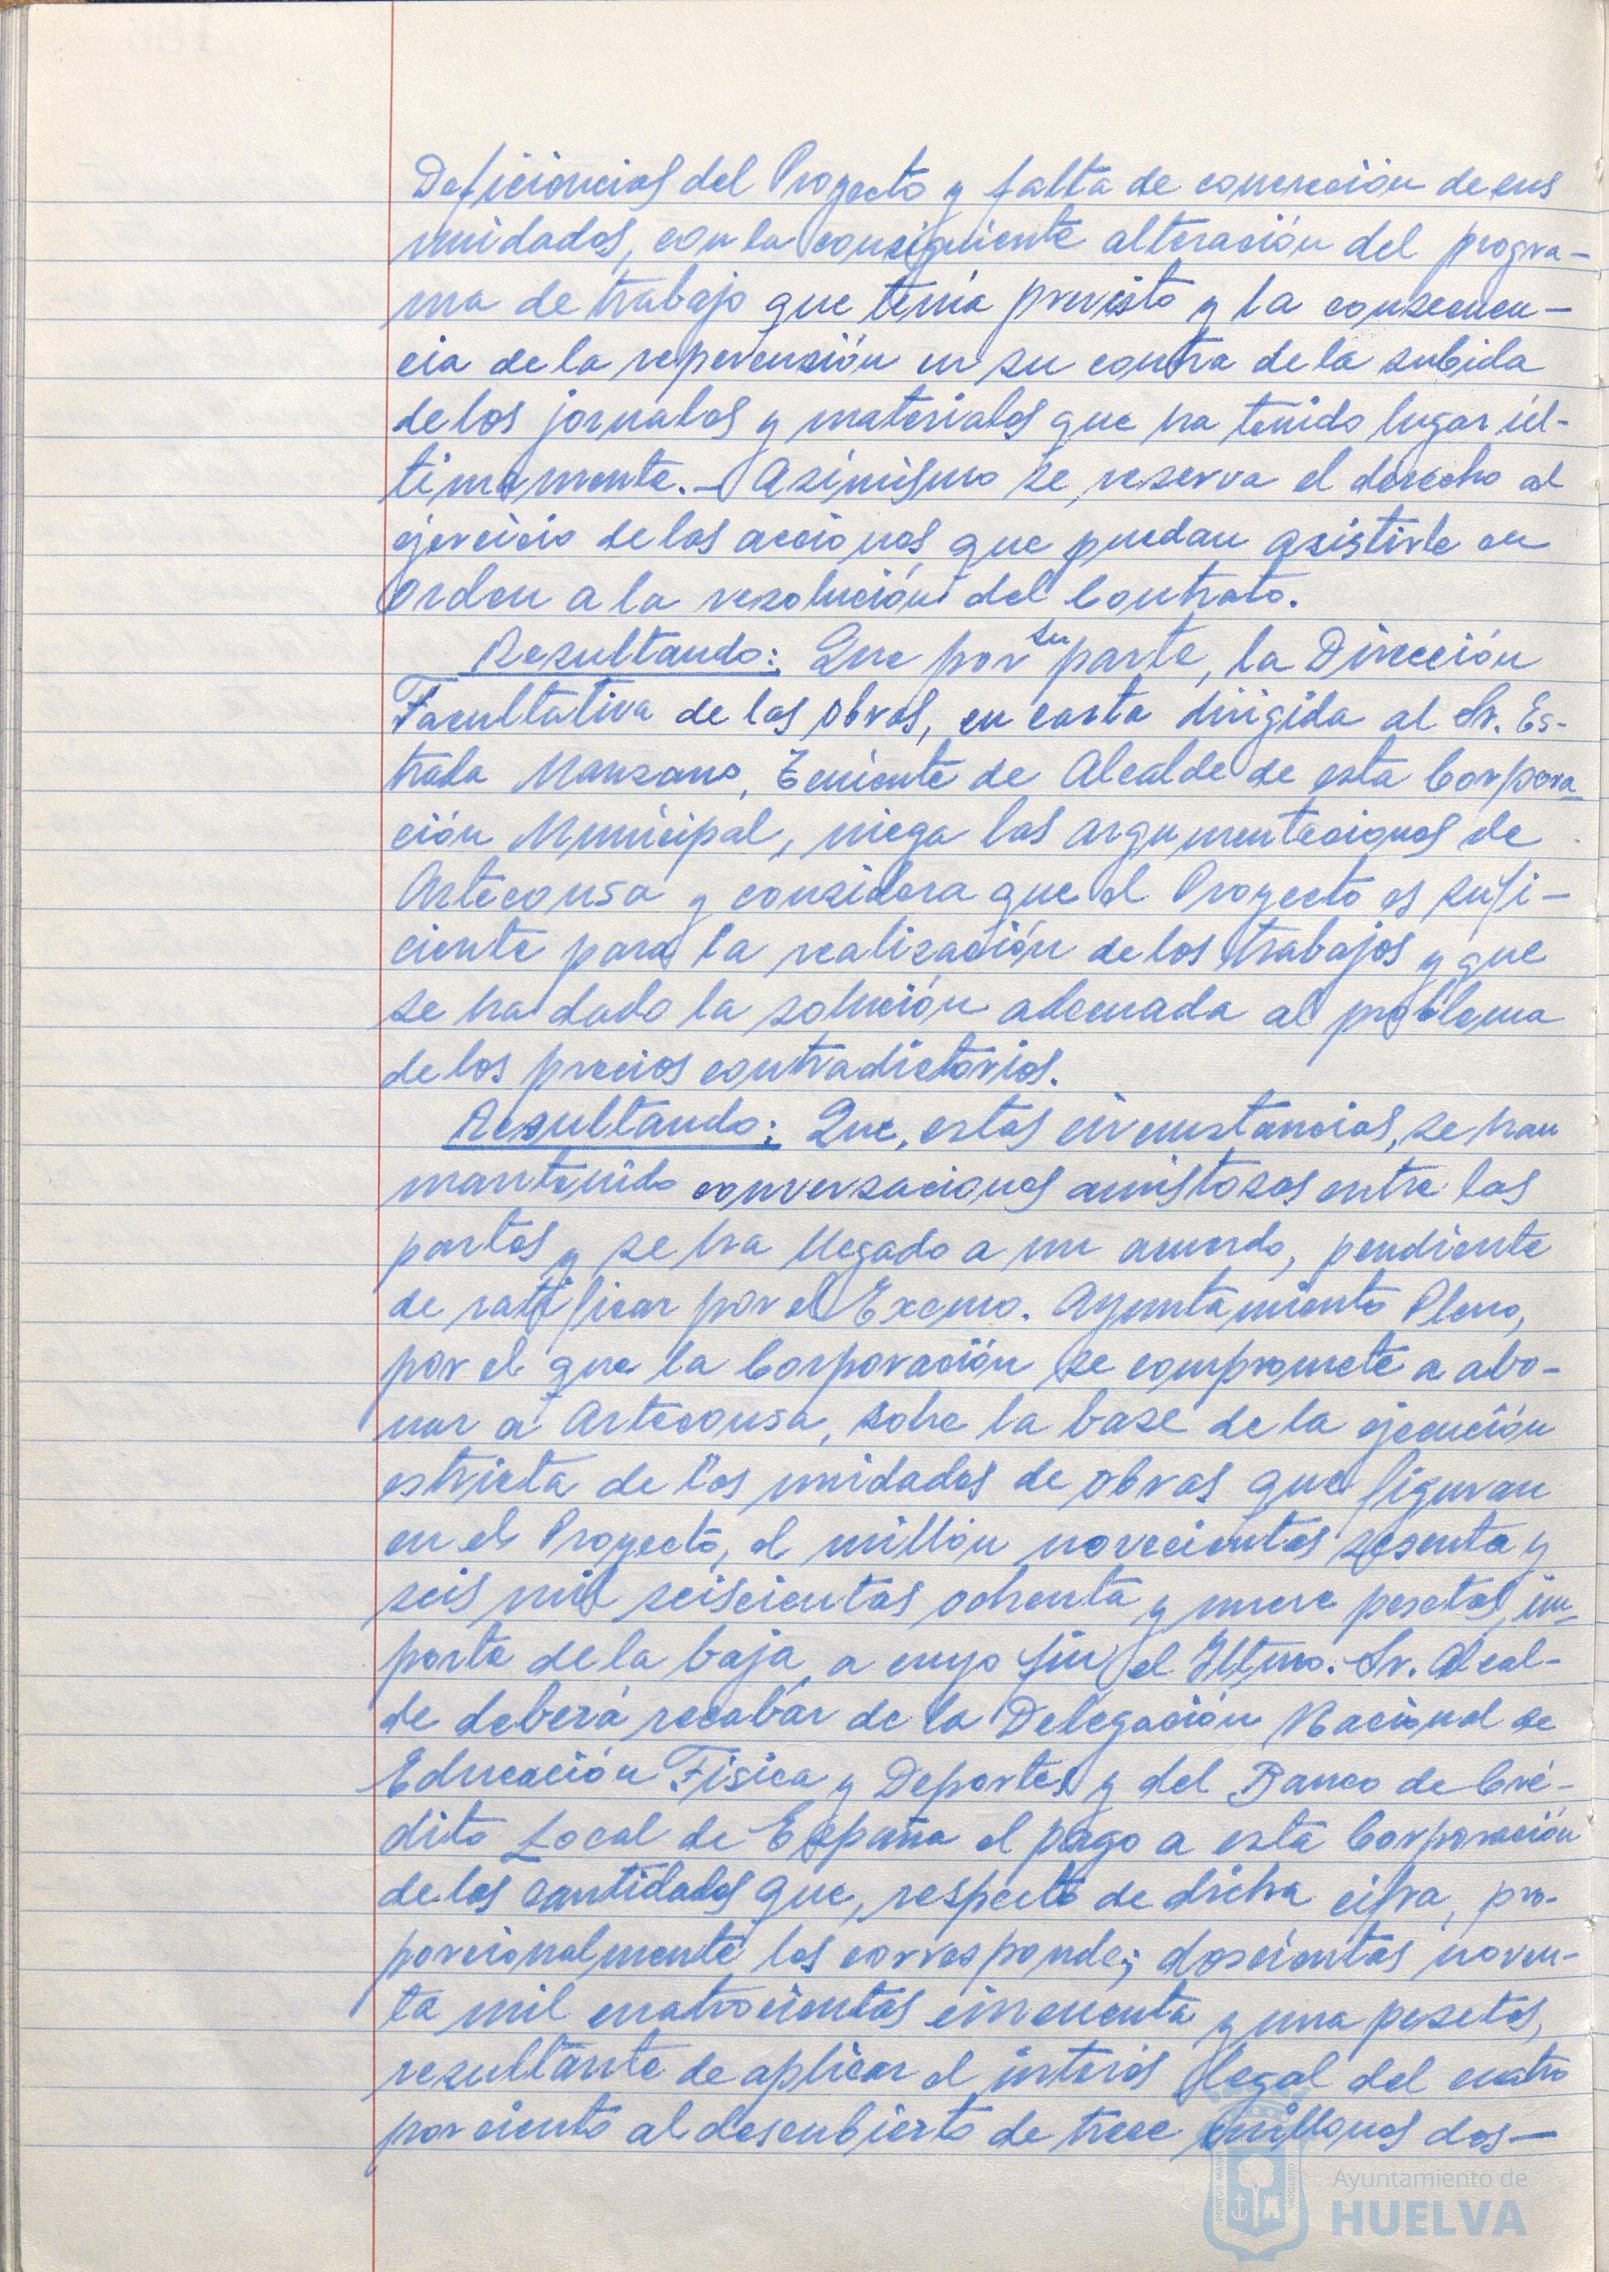 Deficiencias del Proyecto y falta de concreción de sus
unidades, con la consiguiente alteración del progra-
ma de trabajo que tenía previsto y la consecuen-
cia de la repercusión en su contra de la subida
de los jornales y materiales que ha tenido lugar úl-
timamente.- Asimismo se reserva el derecho al
ejercicio de las acciones que puedan asistirle en
orden a la resolución del Contrato.
Resultando: Que por su parte, la Dirección
Facultativa de las obras, en carta dirigida al Sr. Es-
trada Manzano, Teniente de Alcalde de esta Corpora-
ción Municipal, niega las argumentaciones de
Arteconsa y considera que el Proyecto es sufi-
ciente para la realización de los trabajos y que
se ha dado la solución adecuada al problema
de los precios contradictorios.
Resultando: Que, estas circunstancias, se han
mantenido conversaciones amistosas entre las
partes y se ha llegado a un acuerdo, pendiente
de ratificar por el Excmo. Ayuntamiento Pleno,
por el que la Corporación se compromete a abo-
nar a Arteconsa, sobre la base de la ejecución
estricta de las unidades de obras que figuran
en el Proyecto, el millón novecientas sesenta y
seis mil seiscientas ochenta y nueve pesetas, im-
porte de la baja, a cuyo fin el Iltmo. Sr. Alcal-
de deberá recabar de la Delegación Nacional de
Educación Fisica y Deportes y del Banco de Cré-
dito Local de España el pago a esta Corporación
de las cantidades que, respecto de dicha cifra, pro-
porcionalmente les corresponde; doscientas noven-
ta mil cuatrocientas cincuenta y una pesetas,
resultante de aplicar el interés legal del cuatro
por ciento al descubierto de trece millones dos-
Ayuntamiento de
HUELVA